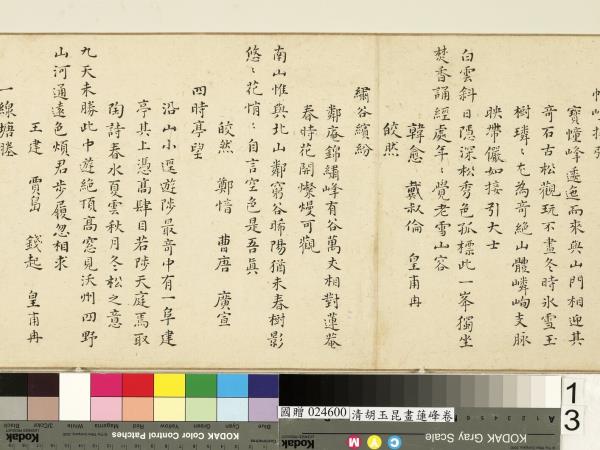 幢峰接引
寶幢峰邐迤而來與山門相迎其
奇石古松觀玩不盡冬時氷雪玉
樹璘〻尤為奇絕山體嶙峋支脉
映帶儼如接引大士
白雲斜日隱深松秀色孤標此一峯獨坐
焚香誦經處年〻覺老雪山容
韓愈 戴叔倫 皇甫冉
皎然
繡谷繽紛
鄰庵錦繡峰有谷萬丈相對蓮菴
春時花開燦熳可觀
南山惟與北山鄰窮谷晞陽猶未春樹影
悠〻花悄〻自言空色是吾真
皎然 鄭愔 曹唐 廣宣
四時高望
沿山小逕遊陟最奇中有一阜建
亭其上憑髙肆目若陟天庭焉取
陶詩春水夏雲秋月冬松之意
九天未勝此中遊絶頂髙窓見沃州四野
山河通遠色煩君步履忽相求
王建 賈島 錢起 皇甫冉
一線
國贈 024600 清胡玉昆畫蓮峰卷
13
Kodak
KODAK Color Control Patches
Blue
Cyan
Green
Yellow
Red
Magenta
White
3/Color
Black
KODAK Gray Scale
C
Y
M
Kodak